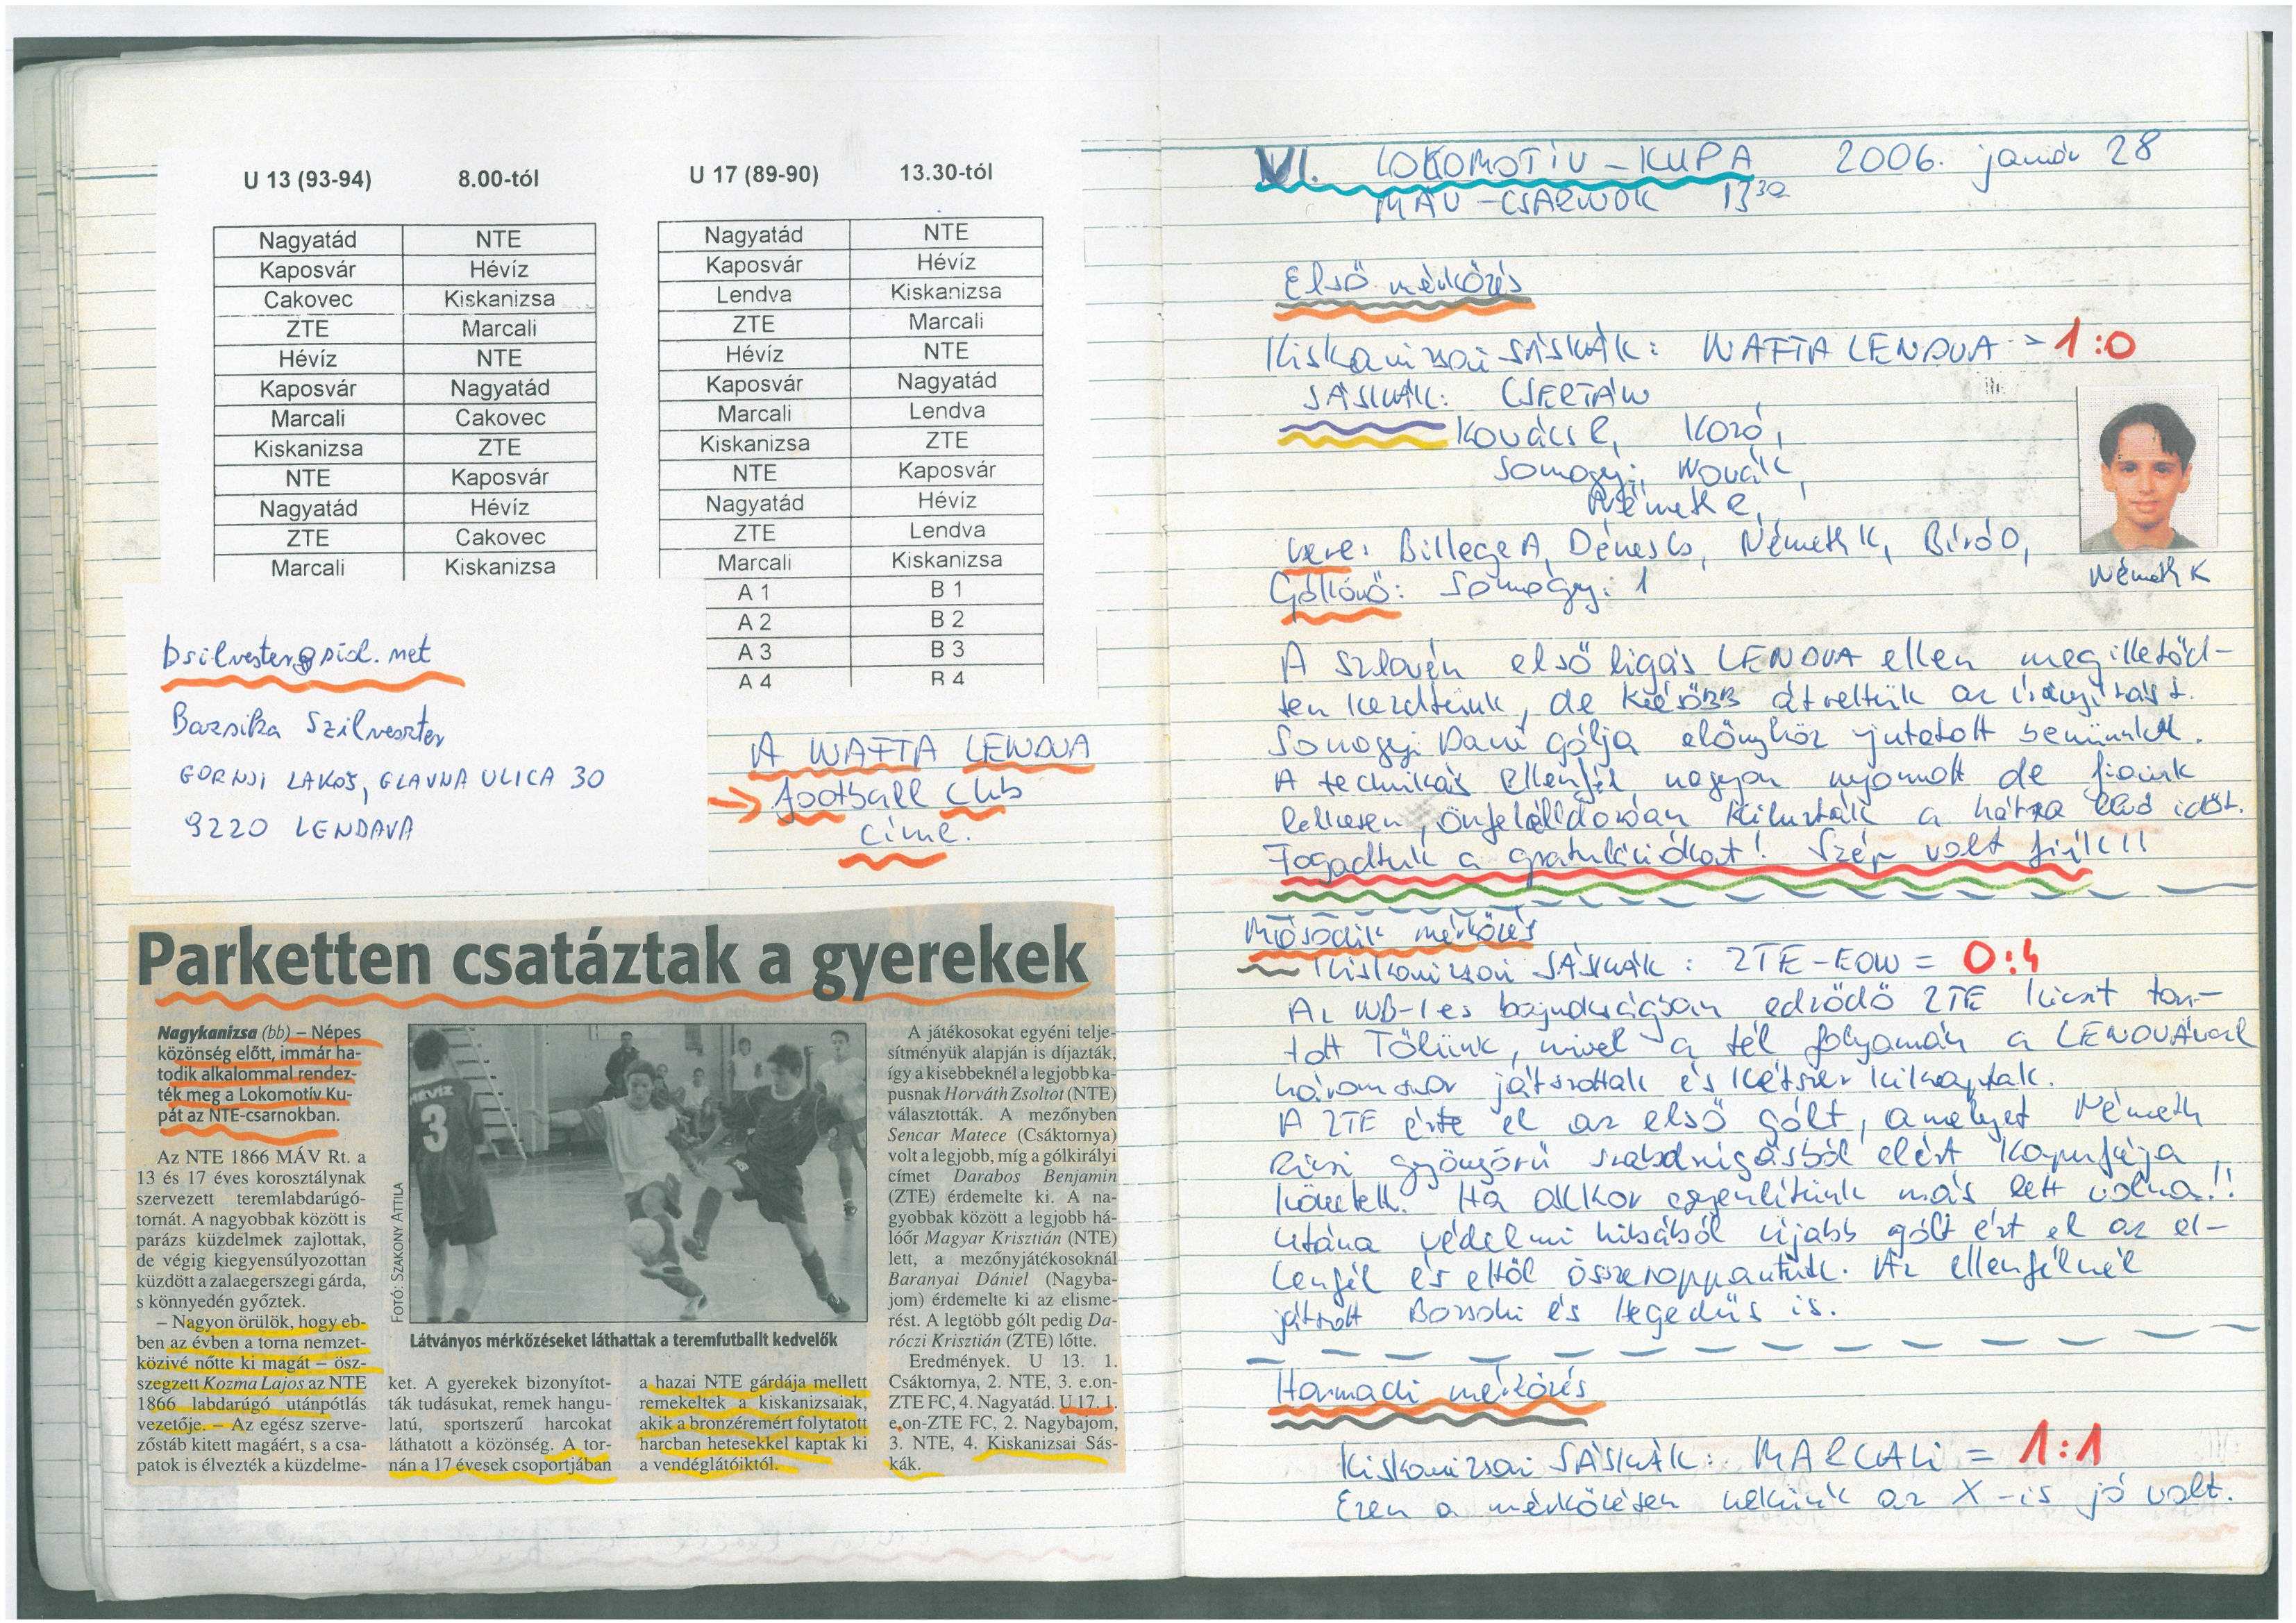 U 13 (93-94) 8.00-tól
Nagyatád NTE
Kaposvár Hévíz
Cakovec Kiskanizsa
ZTE Marcali
Hévíz NTE
Kaposvár Nagyatád
Marcali Cakovec
Kiskanizsa ZTE
NTE Kaposvár
Nagyatád Hévíz
ZTE Cakovec
Marcali Kiskanizsa
U 17 (89-90) 13.30-tól
Nagyatád NTE
Kaposvár Hévíz
Lendva Kiskanizsa
ZTE Marcali
Hévíz NTE
Kaposvár Nagyatád
Marcali Lendva
Kiskanizsa ZTE
NTE Kaposvár
Nagyatád Hévíz
ZTE Lendva
Marcali Kiskanizsa
A 1 B 1
A 2 B 2
A 3 B 3
A 4 B 4
bsilvester@siol.net
Bazsika Szilveszter
GORNJI LAKOŠ, GLAVNA ULICA 30
9220 LENDAVA
A NAFTA LENDVA
→ football club
címe.
Parketten csatáztak a gyerekek
Nagykanizsa (bb) – Népes
közönség előtt, immár ha-
todik alkalommal rendez-
ték meg a Lokomotív Ku-
pát az NTE-csarnokban.
Az NTE 1866 MÁV Rt. a
13 és 17 éves korosztálynak
szervezett teremlabdarúgó-
tornát. A nagyobbak között is
parázs küzdelmek zajlottak,
de végig kiegyensúlyozottan
küzdött a zalaegerszegi gárda,
s könnyedén győztek.
– Nagyon örülök, hogy eb-
ben az évben a torna nemzet-
közivé nőtte ki magát – ösz-
szegzett Kozma Lajos az NTE
1866 labdarúgó utánpótlás
vezetője. – Az egész szerve-
zőstáb kitett magáért, s a csa-
patok is élvezték a küzdelme-
HEVIZ
3
FOTÓ: SZAKONY ATTILA
Látványos mérkőzéseket láthattak a teremfutballt kedvelők
ket. A gyerekek bizonyítot-
ták tudásukat, remek hangu-
latú, sportszerű harcokat
láthatott a közönség. A tor-
nán a 17 évesek csoportjában
a hazai NTE gárdája mellett
remekeltek a kiskanizsaiak,
akik a bronzéremért folytatott
harcban hetesekkel kaptak ki
a vendéglátóiktól.
A játékosokat egyéni telje-
sítményük alapján is díjazták,
így a kisebbeknél a legjobb ka-
pusnak Horváth Zsoltot (NTE)
választották. A mezőnyben
Sencar Matece (Csáktornya)
volt a legjobb, míg a gólkirályi
címet Darabos Benjamin
(ZTE) érdemelte ki. A na-
gyobbak között a legjobb há-
lóőr Magyar Krisztián (NTE)
lett, a mezőnyjátékosoknál
Baranyai Dániel (Nagyba-
jom) érdemelte ki az elisme-
rést. A legtöbb gólt pedig Da-
róczi Krisztián (ZTE) lőtte.
Eredmények. U 13. 1.
Csáktornya, 2. NTE, 3. e.on-
ZTE FC, 4. Nagyatád. U 17. 1.
e.on-ZTE FC, 2. Nagybajom,
3. NTE, 4. Kiskanizsai Sás-
kák.
VI. LOKOMOTÍV – KUPA 2006. január 28
MÁV – CSARNOK 13 30
Első mérkőzés
Kiskanizsai SÁSKÁK : NAFTA LENDVA = 1:0
SÁSKÁK: CSERTÁN,
Kovács R, Kozó,
Somogyi, Novák,
Németh R,
csere: Billege A, Dénes G, Németh K, Bíró O,
Góllövő: Somogyi 1
Németh K
A szlovén első ligás LENDVA ellen megilletőd-
ten kezdtünk, de KÉSŐBB átvettük az irányítást.
Somogyi Dani gólja előnyhöz jutatott bennünket.
A technikás ellenfél nagyon nyomott de fiaink
lelkesen, önfeláldozóan kihúzták a hátra lévő időt.
Fogadtuk a gratulációkat! Szép volt fiúk!!!
Második mérkőzés
Kiskanizsai SÁSKÁK : ZTE – EON = 0:4
Az NB-I es bajnokságban edződő ZTE kicsit tar-
tott Tőlünk, mivel a tél folyamán a LENDVÁval
háromszor játszottak és kétszer kikaptak.
A ZTE érte el az első gólt, amelyet Németh
Ricsi gyönyörű szabadrúgásból elért kapufája
követett. Ha akkor egyenlítünk más lett volna!!
Utána védelmi hibából újabb gólt ért el az el-
lenfél és ettől összeroppantunk. Az ellenfélnél
játszott Bozsoki és Hegedűs is.
Harmadi mérkőzés
Kiskanizsai SÁSKÁK : MARCALI = 1:1
Ezen a mérkőzésen nekünk az X-is jó volt.